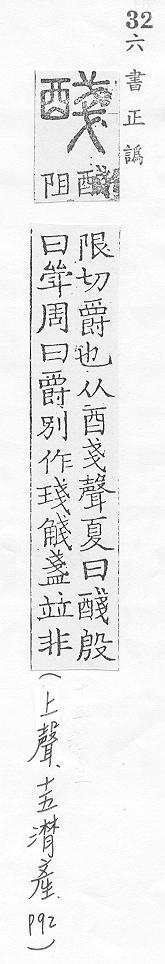 32
六書正譌
醆
醆
阻
限切爵也从酉戔聲夏曰醆殷
曰斝周曰爵別作琖盞竝非
(上聲、十五潸產、P92)